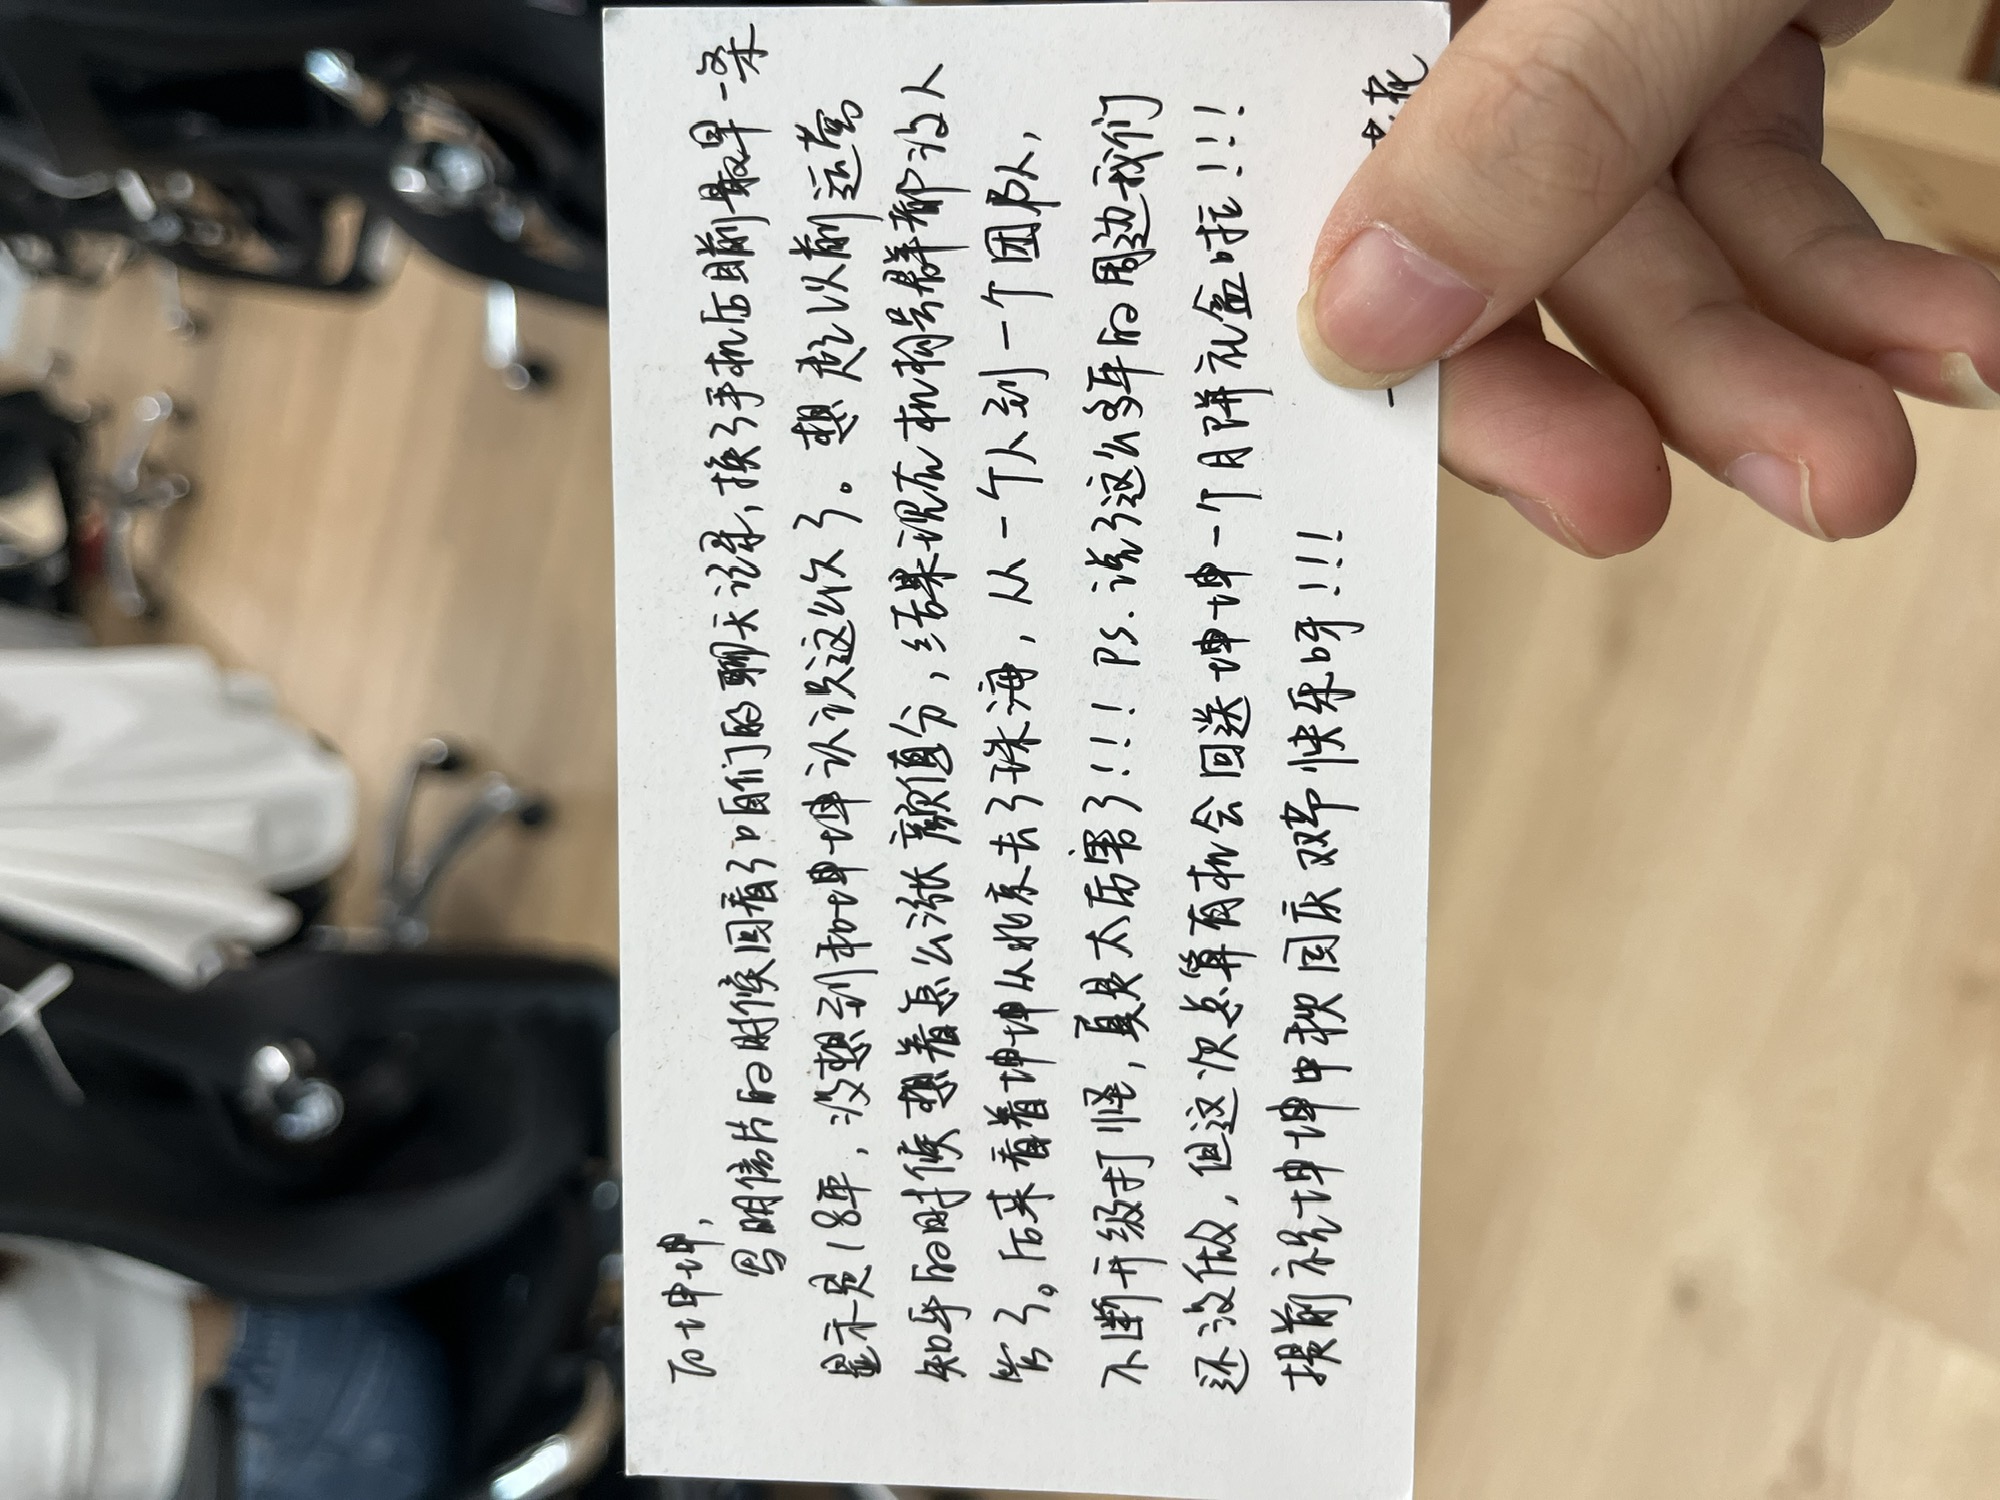 To坤坤,
写明信片的时候回看了咱们的聊天记录,换了手机后目前最早一条
显示是18年,没想到和坤坤认识这么久了。想起以前运营
知乎的时候想着怎么涨颜值分,结果现在机构号群都没人
管了。后来看着坤坤从北京去了珠海,从一个人到一个团队,
不断升级打怪,真是太厉害了!!! Ps.说了这么多年的周边我们
还没做,但这次总算有机会回送坤坤一个月饼礼盒啦!!!
提前祝坤坤中秋国庆双节快乐呀!!!